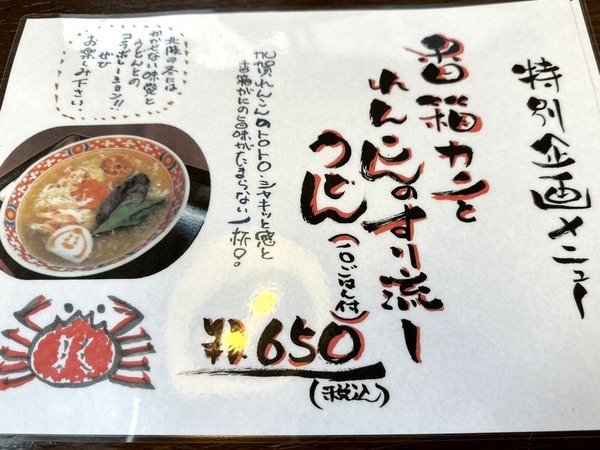 特別企画メニュー
香箱カニと
れんこんのすり流し
うどん(一口ごはん付)
¥1.650
(税込)
加賀れんこんのトロトロ・シャキッと感と
香箱がにの旨味がたまらない一杯。
北陸の冬には
かかせない味覚と
うどんとの
コラボレーション!!
ぜひ
お楽しみ下さい。